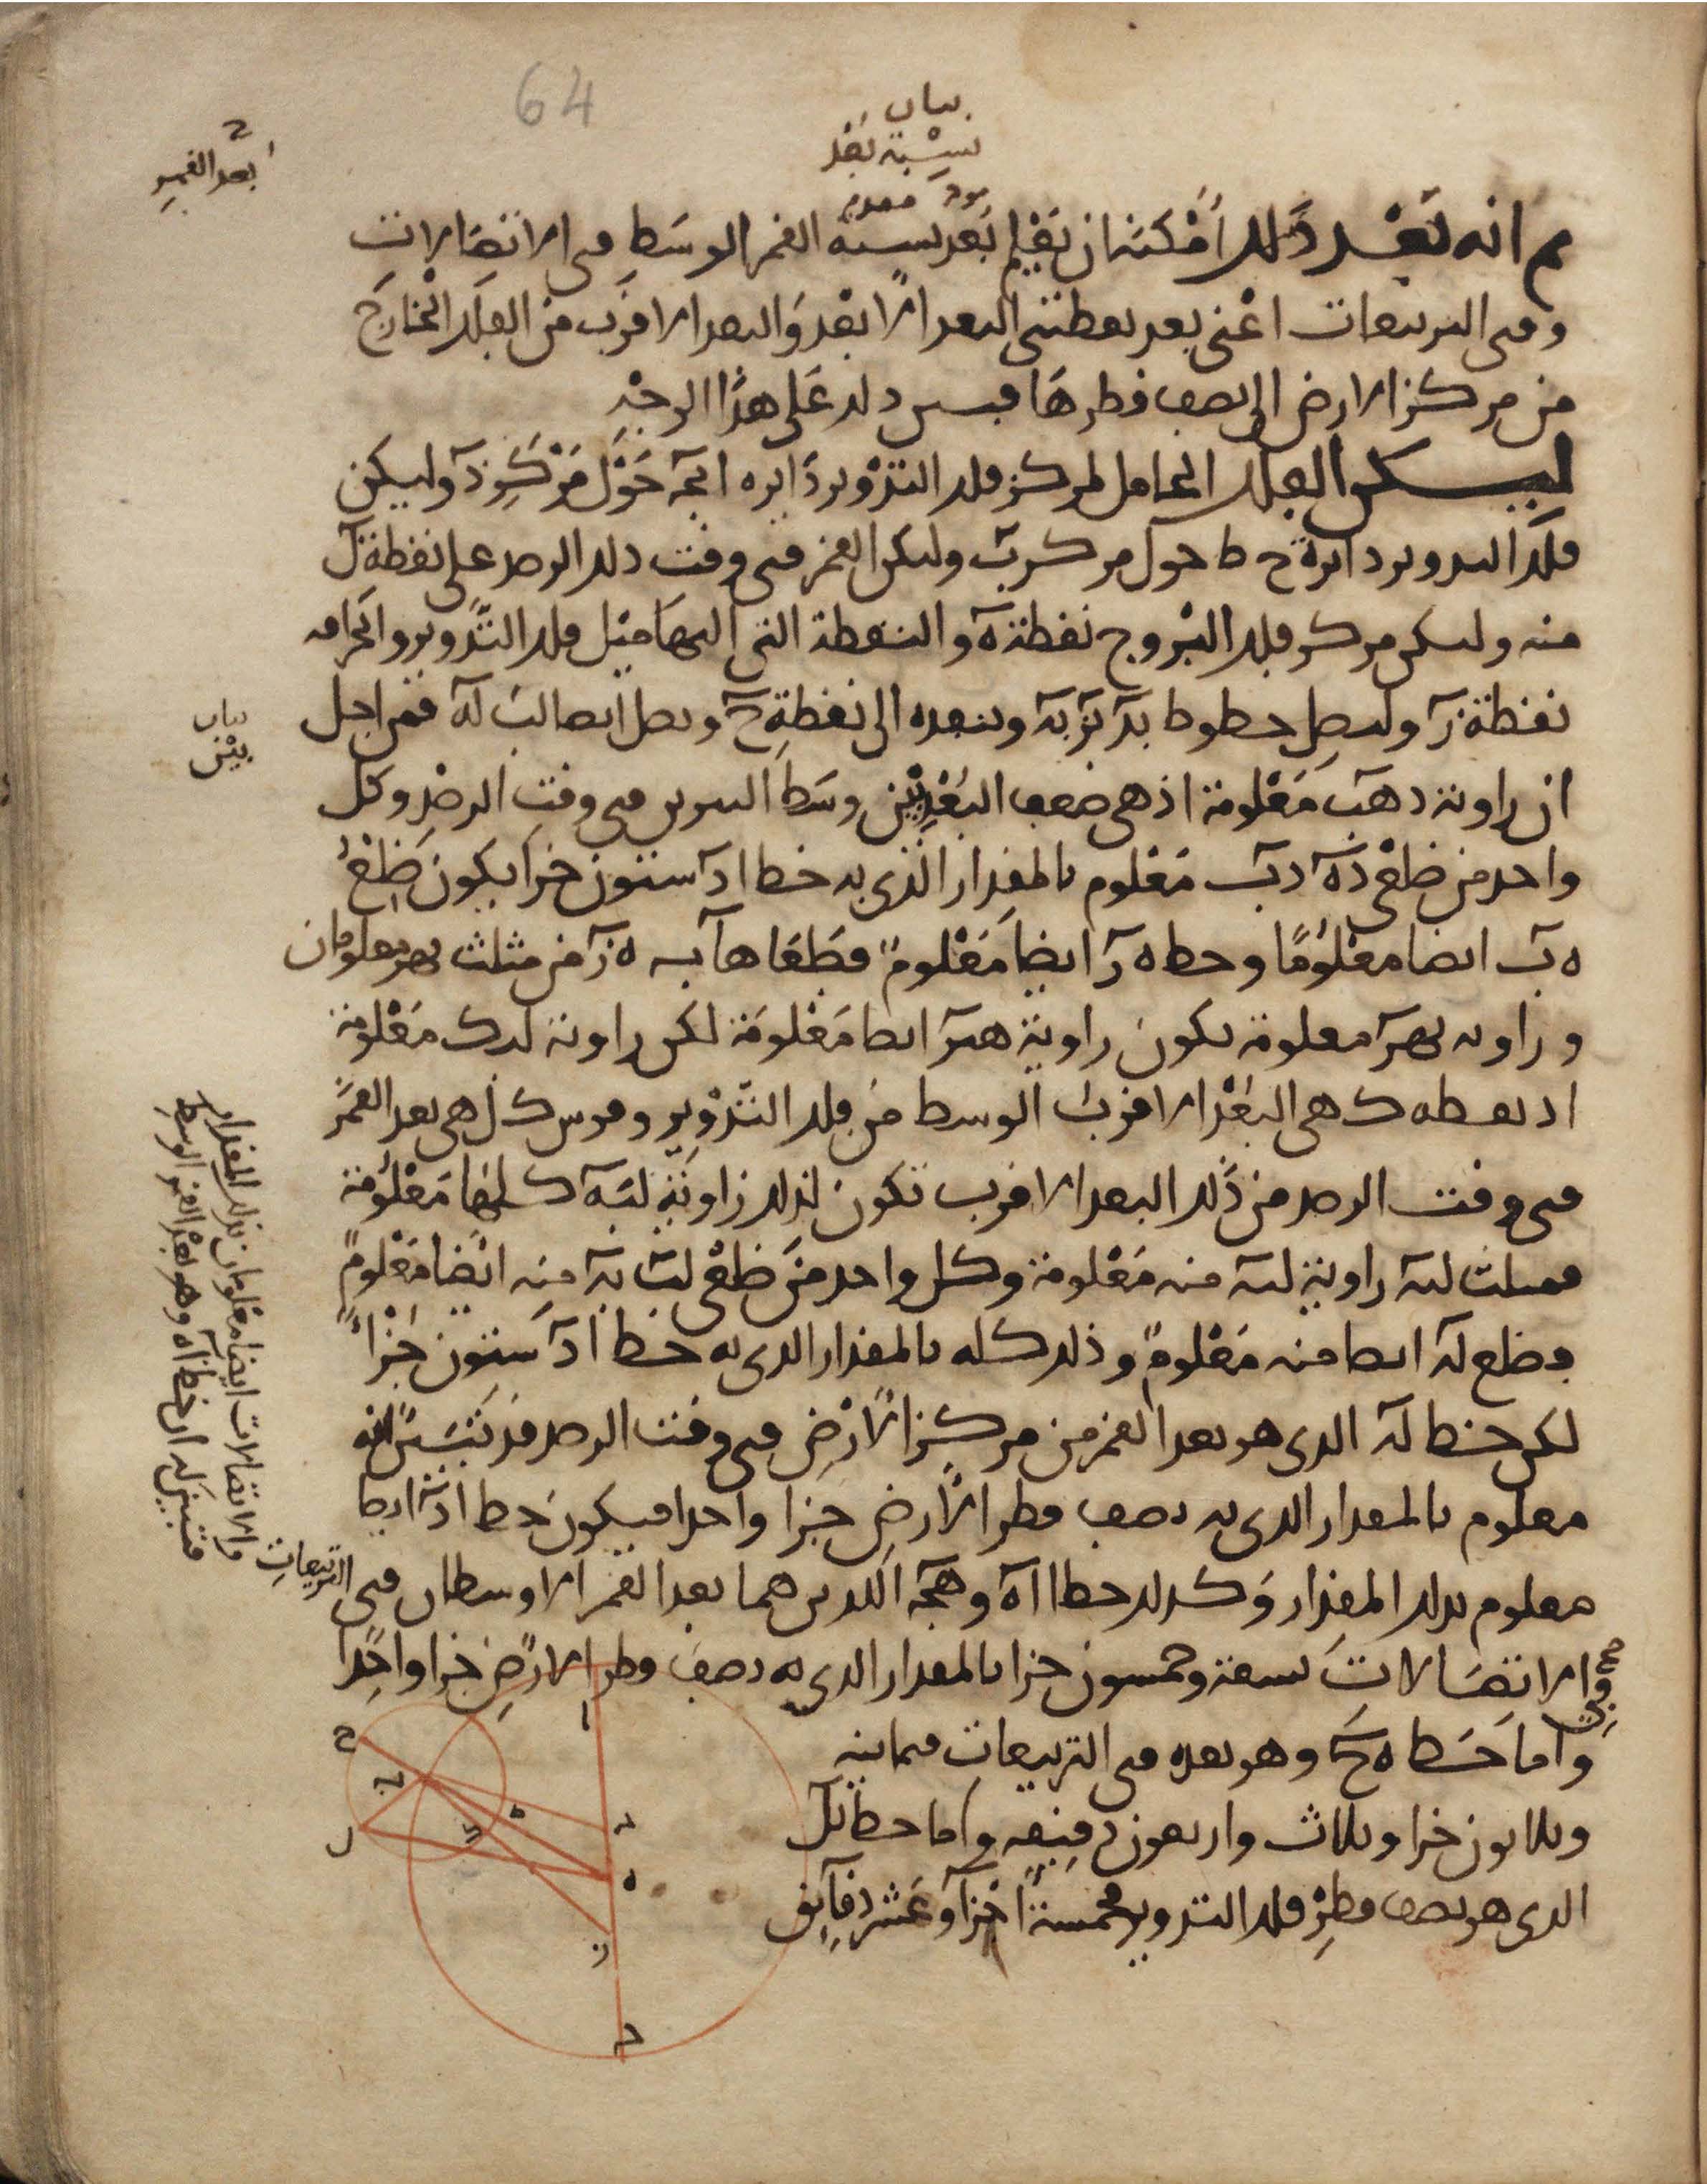 64
بيان
نسبة بعد
بعد القمر
ثم انه بعد ذلك أمكننا ان نقيم بعد نسبة القمر الوسط في الاتصالات
وفي التربيعات اعني بعد نقطتي البعد الابعد والبعد الاقرب من الفلك الخارج
من مركز الارض الى نصف قطرها فبين ذلك على هذا الوجه
ليكن الفلك الحامل لمركز فلك التدوير دايره ابجـ حول مركز د وليكن
فلك التدوير دايرة ح ط حول مركز ب وليكن القمر في وقت ذلك الرصد على نقطة ل
منه وليكن مركز فلك البروج نقطة ه والنقطة التي اليها ميل فلك التدوير وانحرافه
نقطة ز ولنصل خطوط بد بز به وننفده الى نقطة ح ونصل ايضا لب له فمن اجل
بيان
بين
ان زاوية دهب معلومة اذ هي ضعف البعد بين وسط النيرين في وقت الرصد وكل
واحد من ضلعي ده دب معلوم بالمقدار الذي به خط اد ستون جزا يكون ضلع
ه ب ايضا معلومًا وخط ه ز ايضا معلوم فضلعا هب ه ز من مثلث بهز معلومان
وزاويه بهز معلومة تكون زاوية هبز ايضا معلومة لكن زاوية لبك معلومة
اذ نقطه ك هي البعد الاقرب الوسط من فلك التدوير وقوس ك ل هي بعد القمر
في وقت الرصد من ذلك البعد الاقرب تكون لذلك زاوية لبه كلها معلومة
فمثلث لبه زاوية لبه منه معلومة وكل واحد من ضلعي لب به منه ايضا معلوم
فضلع له ايضا منه معلوم وذلك كله بالمقدار الذي به خط اد ستون جزأ
لكن خط له الذي هو بعد القمر من مركز الارض في وقت الرصد قد تبين انه
معلوم بالمقدار الذي به نصف قطر الارض جزا واحدا فيكون خط اد ايضا
معلوم بذلك المقدار وكذلك خطا اه وهجـ اللذين هما بعدا القمر الاوسطان في التربيعات
والاتصالات تسعة وخمسون جزا بالمقدار الذي به نصف قطر الارض جزا واحدا
صح
واما خط ه ج وهو بعده في التربيعات فثمانية
وثلاثون جزا وثلاث واربعون دقيقه واما خط بل
الذي هو نصف قطر فلك التدوير فخمسة اجزا وعشر دقايق
والاتصالات ايضا معلومان بذلك المقدار
فتبين لك ان خط اه وهو بعد القمر الوسط
ا
ح
ب
ل
ط
ك
د
ه
ز
ج